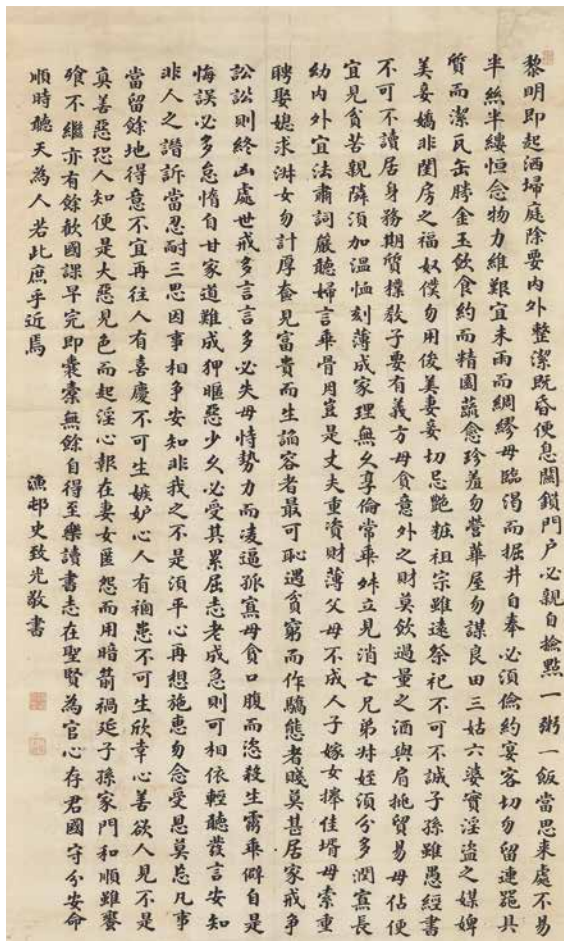 黎明即起洒埽庭除要内外整潔既昏便息關鎖門户必親自撿點一粥一飯當思来處不易
半絲半縷恒念物力維艱宜未雨而綢繆毋臨渴而掘井自奉必須儉約宴客切勿留連器具
質而潔瓦缶勝金玉飲食約而精園蔬愈珍羞勿營華屋勿謀良田三姑六婆實淫盗之媒婢
美妾嬌非閨房之福奴僕勿用俊美妻妾切忌艷粧祖宗雖遠祭祀不可不誠子孫雖愚經書
不可不讀居身務期質樸教子要有義方毋貪意外之財莫飲過量之酒與肩挑貿易毋佔便
宜見貧苦親隣須加温恤刻薄成家理無久享倫常乖舛立見消亡兄弟叔姪須分多潤寡長
幼内外宜法肅詞嚴聽婦言乖骨肉豈是丈夫重資財薄父母不成人子嫁女擇佳壻毋索重
聘娶媳求淑女勿計厚奩見富貴而生諂容者最可恥遇貧窮而作驕態者賤莫甚居家戒争
訟訟則終凶處世戒多言言多必失毋恃勢力而凌逼孤寡毋貪口腹而恣殺生靈乖僻自是
悔誤必多怠惰自甘家道難成狎暱惡少久必受其累屈志老成急則可相依輕聽發言安知
非人之譖訴當忍耐三思因事相争安知非我之不是須平心再想施惠勿念受恩莫忘凡事
當留餘地得意不宜再往人有喜慶不可生嫉妒心人有禍患不可生欣幸心善欲人見不是
真善惡恐人知便是大惡見色而起淫心報在妻女匿怨而用暗箭禍延子孫家門和順雖饔
飱不繼亦有餘歡國課早完即囊橐無餘自得至樂讀書志在聖賢為官心存君國守分安命
順時聽天為人若此庶乎近焉
漁邨史致光敬書